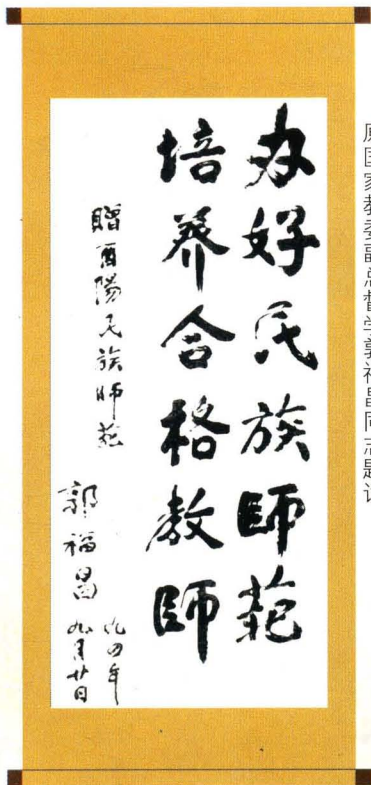 原国家教委副总督学郭福昌同志题词
办好民族師范
培养合格教師
贈酉陽民族師范
郭福昌
九四年
九月廿日